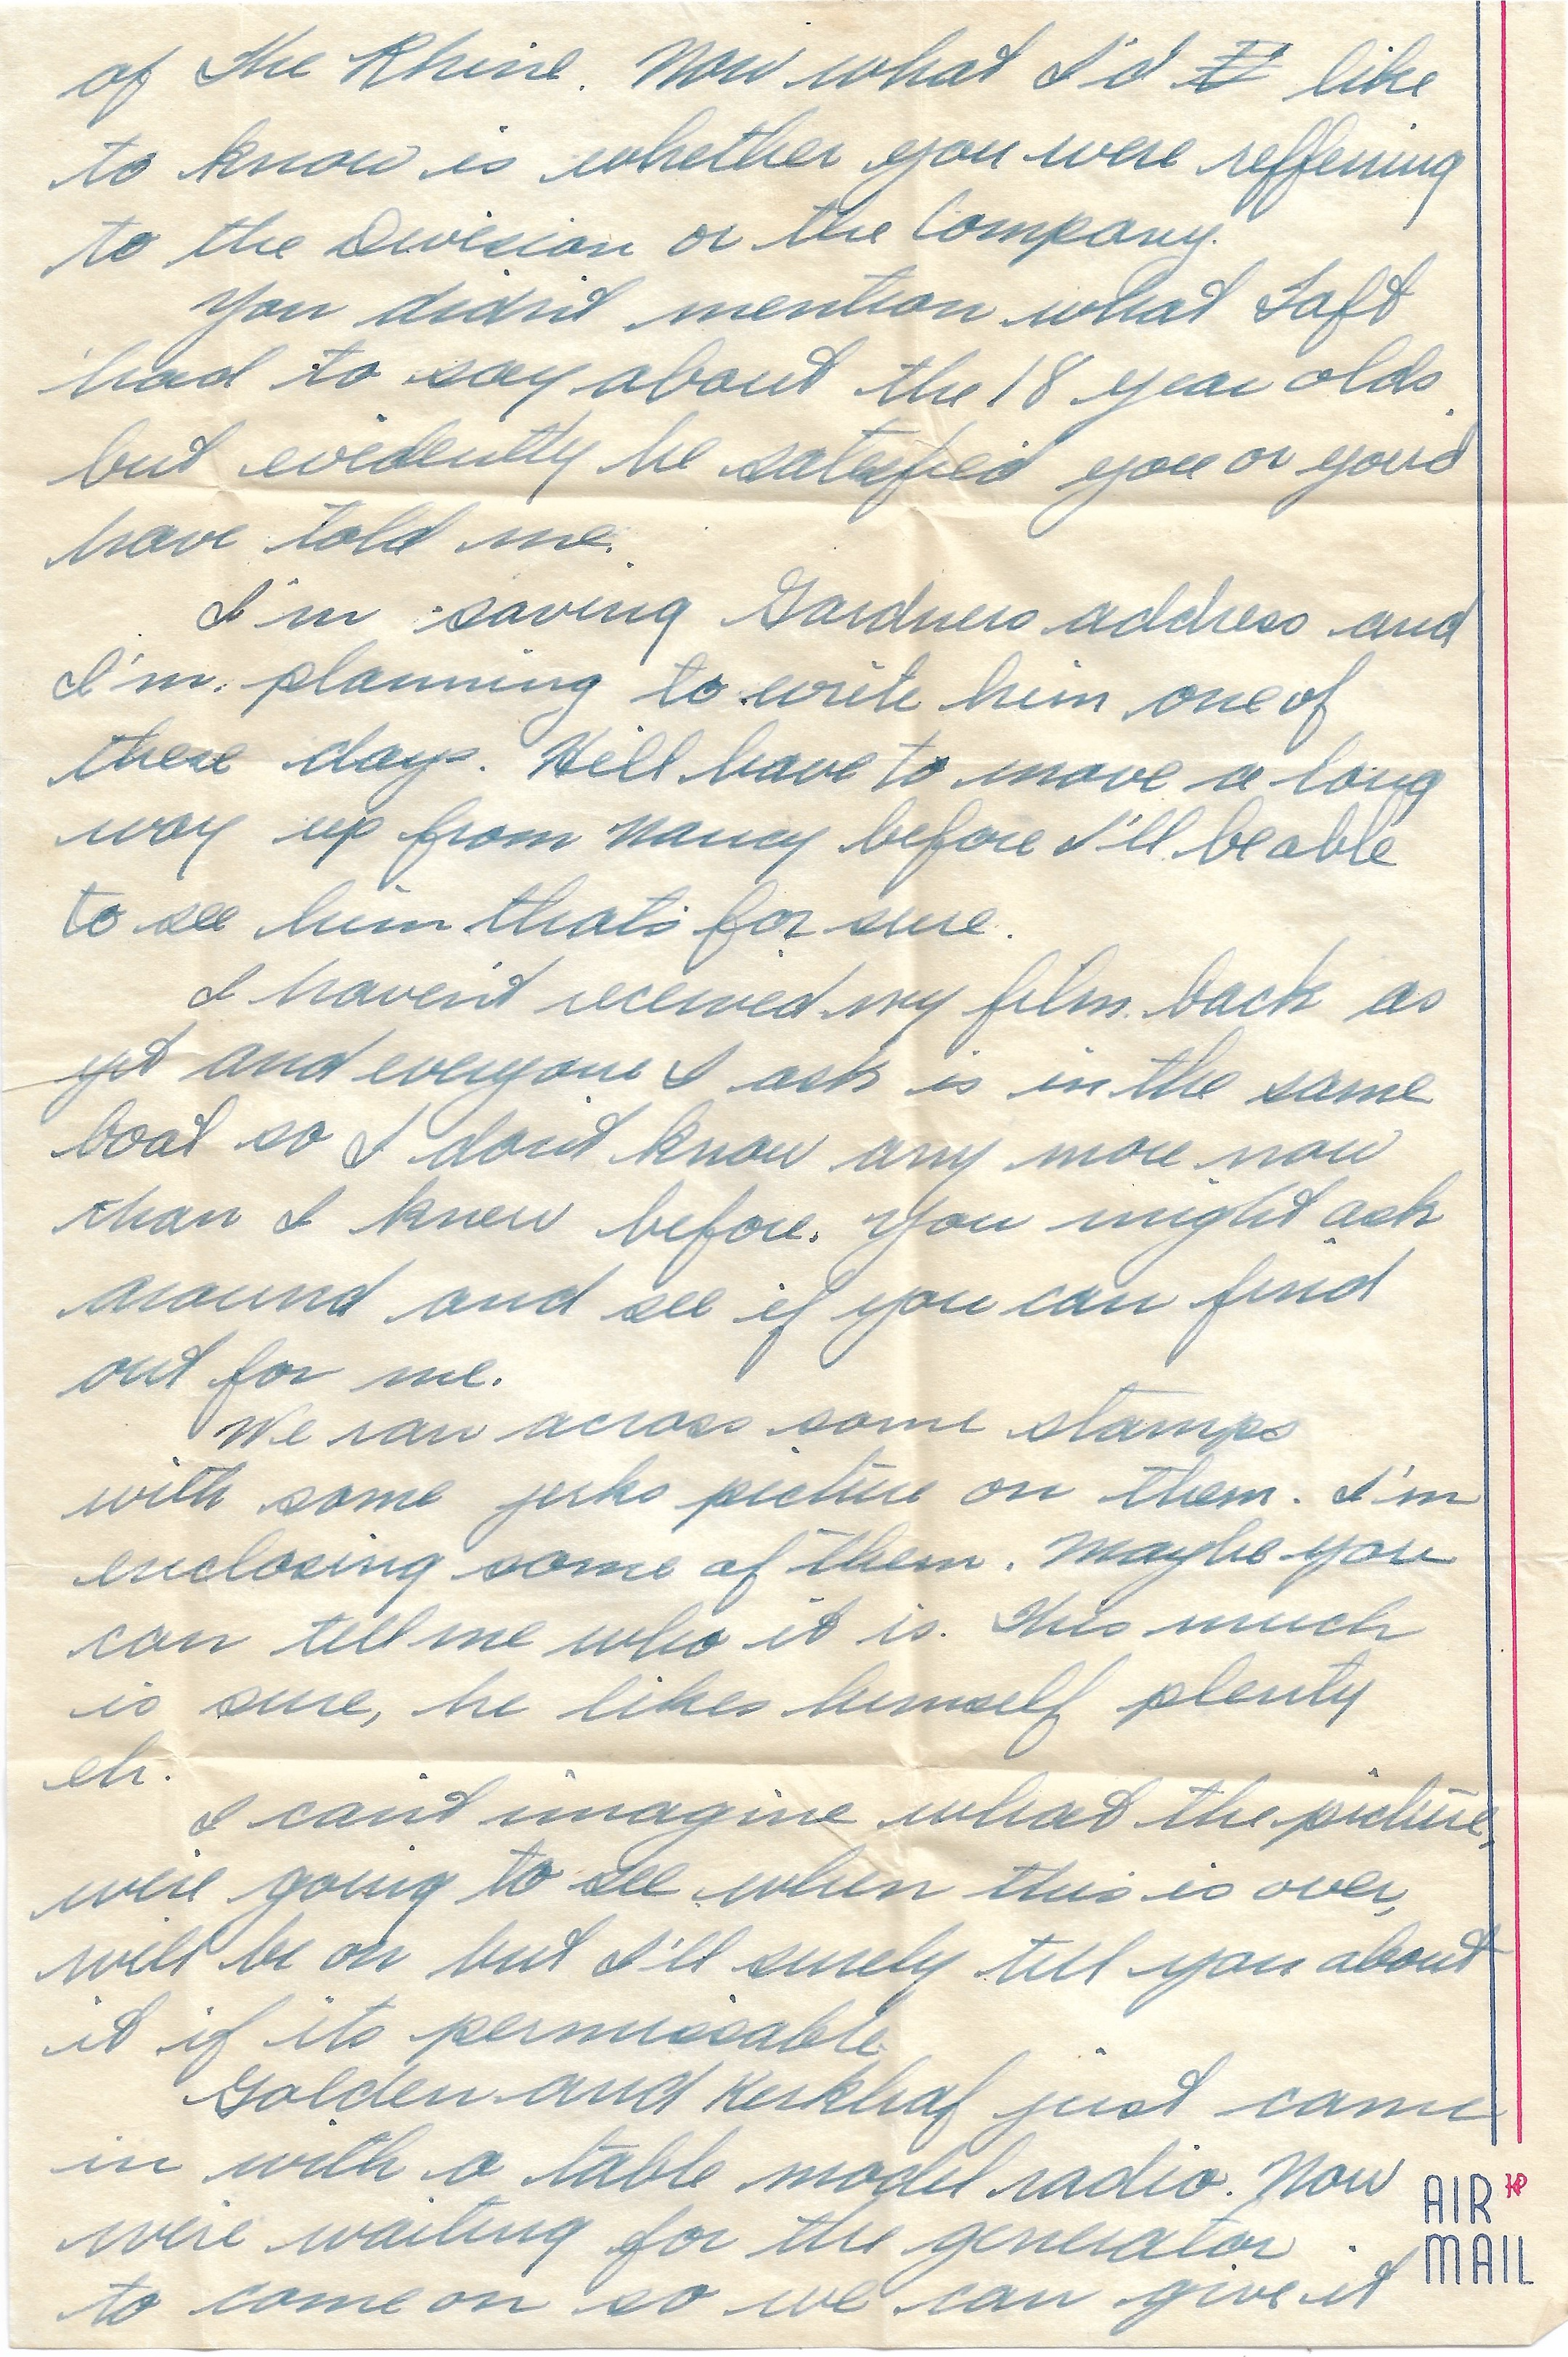 of the Rhine. Now what I'd like
to know is whether you were reffering
to the Division or the Company.
You didn't mention what Taft
had to say about the 18 year olds
but evidently he satisfied you or you'd
have told me.
I'm saving Gardners address and
I'm planning to write him one of
these days. He'll have to move a long
way up from Nancy before I'll be able
to see him that's for sure.
I haven't received my film back as
yet and everyone I ask is in the same
boat so I don't know any more now
than I knew before. You might ask
around and see if you can find
out for me.
We ran across some stamps
with some jerks picture on them. I'm
enclosing some of them. Maybe you
can tell me who it is. This much
is sure, he likes himself plenty
eh.
I can't imagine what the picture,
we're going to see when this is over,
will be on but I'll surely tell you about
it if its permissable.
Golden and Kerkhof just came
in with a table model radio. Now
we're waiting for the generator
to come on so we can give it
AIR
MAIL